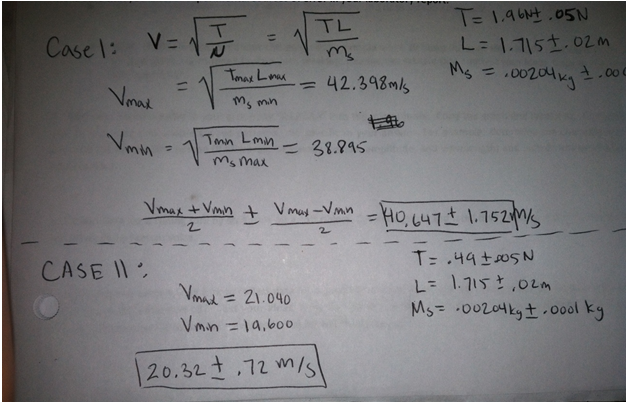 Case 1: V = √(T/N) = √(TL/ms)
T = 1.96N ± .05N
L = 1.715 ± .02 m
Ms = .00204 kg ± .000
Vmax = √(Tmax Lmax/ms min) = 42.398 m/s
Vmin = √(Tmin Lmin/ms max) = 38.895
(Vmax + Vmin)/2 ± (Vmax - Vmin)/2 = 40.647 ± 1.752 m/s
CASE II:
T = .49 ± .005N
L = 1.715 ± .02m
Ms = .00204kg ± .0001 kg
Vmax = 21.040
Vmin = 19.600
20.32 ± .72 m/s